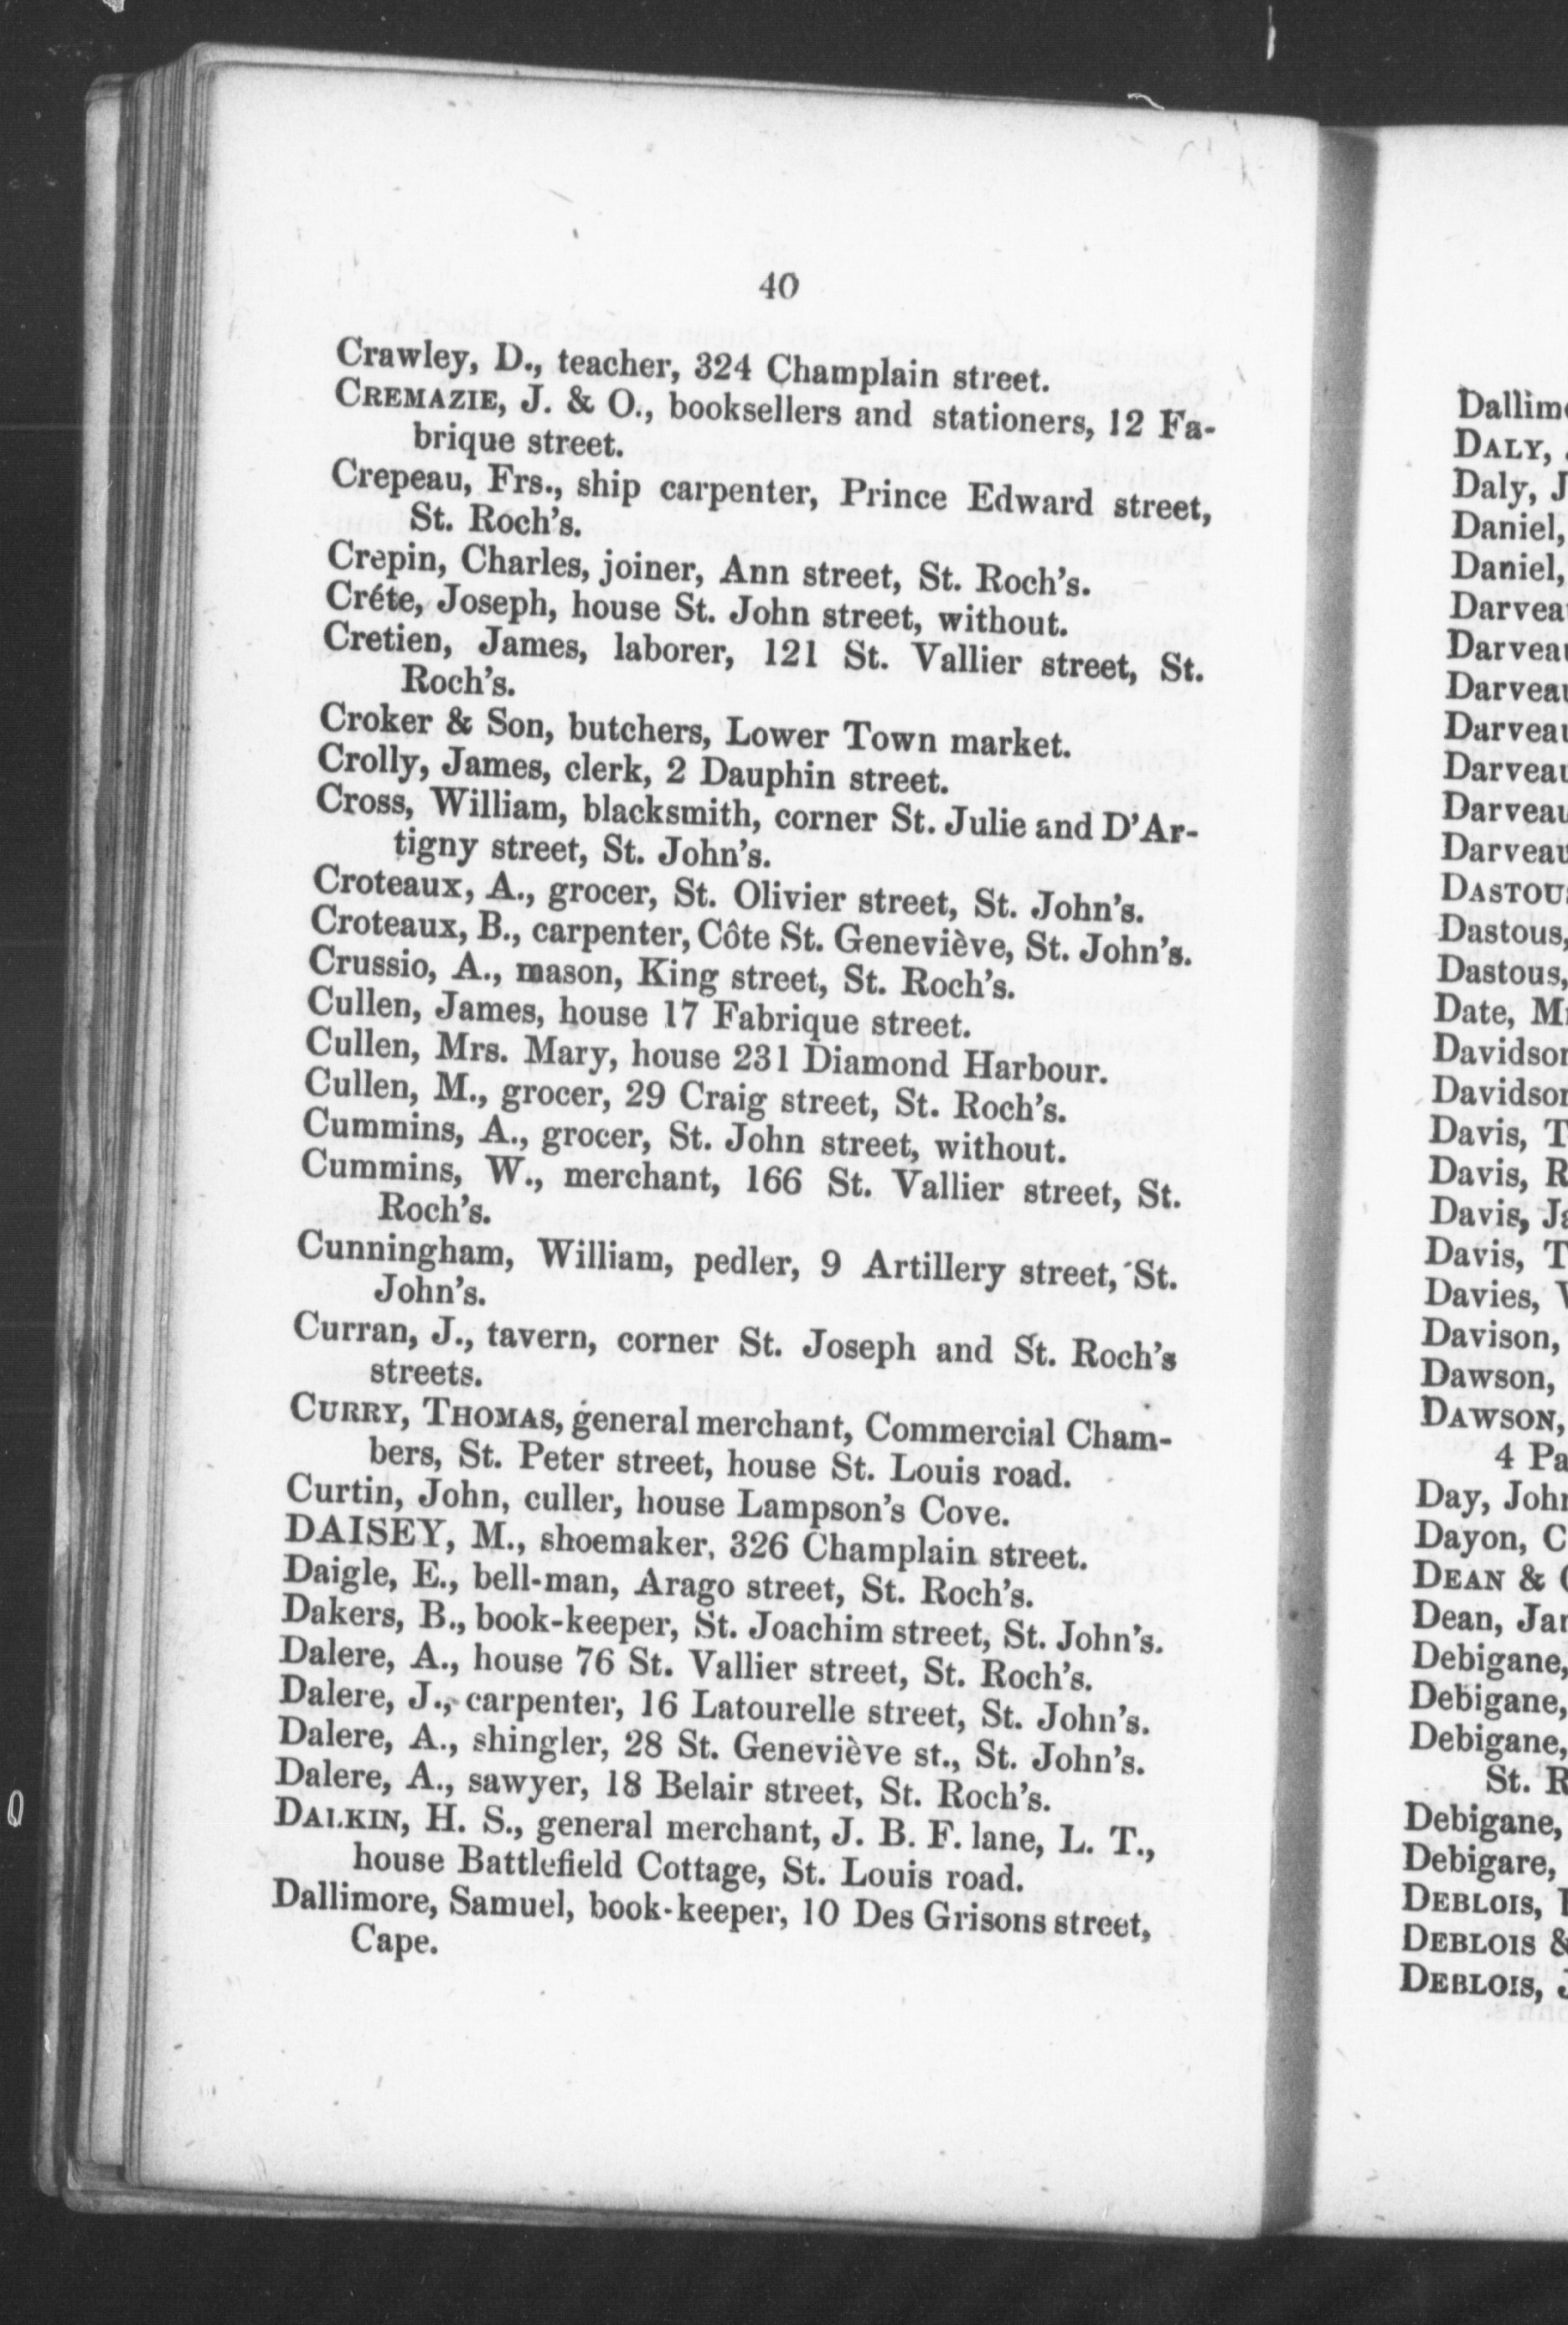 40
Crawley, D., teacher, 324 Champlain street.
CREMAZIE, J. & O., booksellers and stationers, 12 Fa-
brique street.
Crepeau, Frs., ship carpenter, Prince Edward street,
St. Roch's.
Crepin, Charles, joiner, Ann street, St. Roch's.
Créte, Joseph, house St. John street, without.
Cretien, James, laborer, 121 St. Vallier street, St.
Roch's.
Croker & Son, butchers, Lower Town market.
Crolly, James, clerk, 2 Dauphin street.
Cross, William, blacksmith, corner St. Julie and D'Ar-
tigny street, St. John's.
Croteaux, A., grocer, St. Olivier street, St. John's.
Croteaux, B., carpenter, Côte St. Geneviève, St. John's.
Crussio, A., mason, King street, St. Roch's.
Cullen, James, house 17 Fabrique street.
Cullen, Mrs. Mary, house 231 Diamond Harbour.
Cullen, M., grocer, 29 Craig street, St. Roch's.
Cummins, A., grocer, St. John street, without.
Cummins, W., merchant, 166 St. Vallier street, St.
Roch's.
Cunningham, William, pedler, 9 Artillery street, St.
John's.
Curran, J., tavern, corner St. Joseph and St. Roch's
streets.
CURRY, THOMAS, general merchant, Commercial Cham-
bers, St. Peter street, house St. Louis road.
Curtin, John, culler, house Lampson's Cove.
DAISEY, M., shoemaker, 326 Champlain street.
Daigle, E., bell-man, Arago street, St. Roch's.
Dakers, B., book-keeper, St. Joachim street, St. John's.
Dalere, A., house 76 St. Vallier street, St. Roch's.
Dalere, J., carpenter, 16 Latourelle street, St. John's.
Dalere, A., shingler, 28 St. Geneviève st., St. John's.
Dalere, A., sawyer, 18 Belair street, St. Roch's.
DALKIN, H. S., general merchant, J. B. F. lane, L. T.,
house Battlefield Cottage, St. Louis road.
Dallimore, Samuel, book-keeper, 10 Des Grisons street,
Cape.
Dallim
DALY,
Daly, J
Daniel,
Daniel,
Darvea
Darveau
Darveau
Darveau
Darveau
Darveau
Darveau
DASTOUS
Dastous,
Dastous,
Date, M
Davidson
Davidson
Davis, T
Davis, R
Davis, Ja
Davis, T
Davies,
Davison,
Dawson,
DAWSON,
4 Pa
Day, John
Dayon, C
DEAN &
Dean, Jam
Debigane,
Debigane,
Debigane,
St. R
Debigane,
Debigare,
DEBLOIS,
DEBLOIS &
DEBLOIS, J